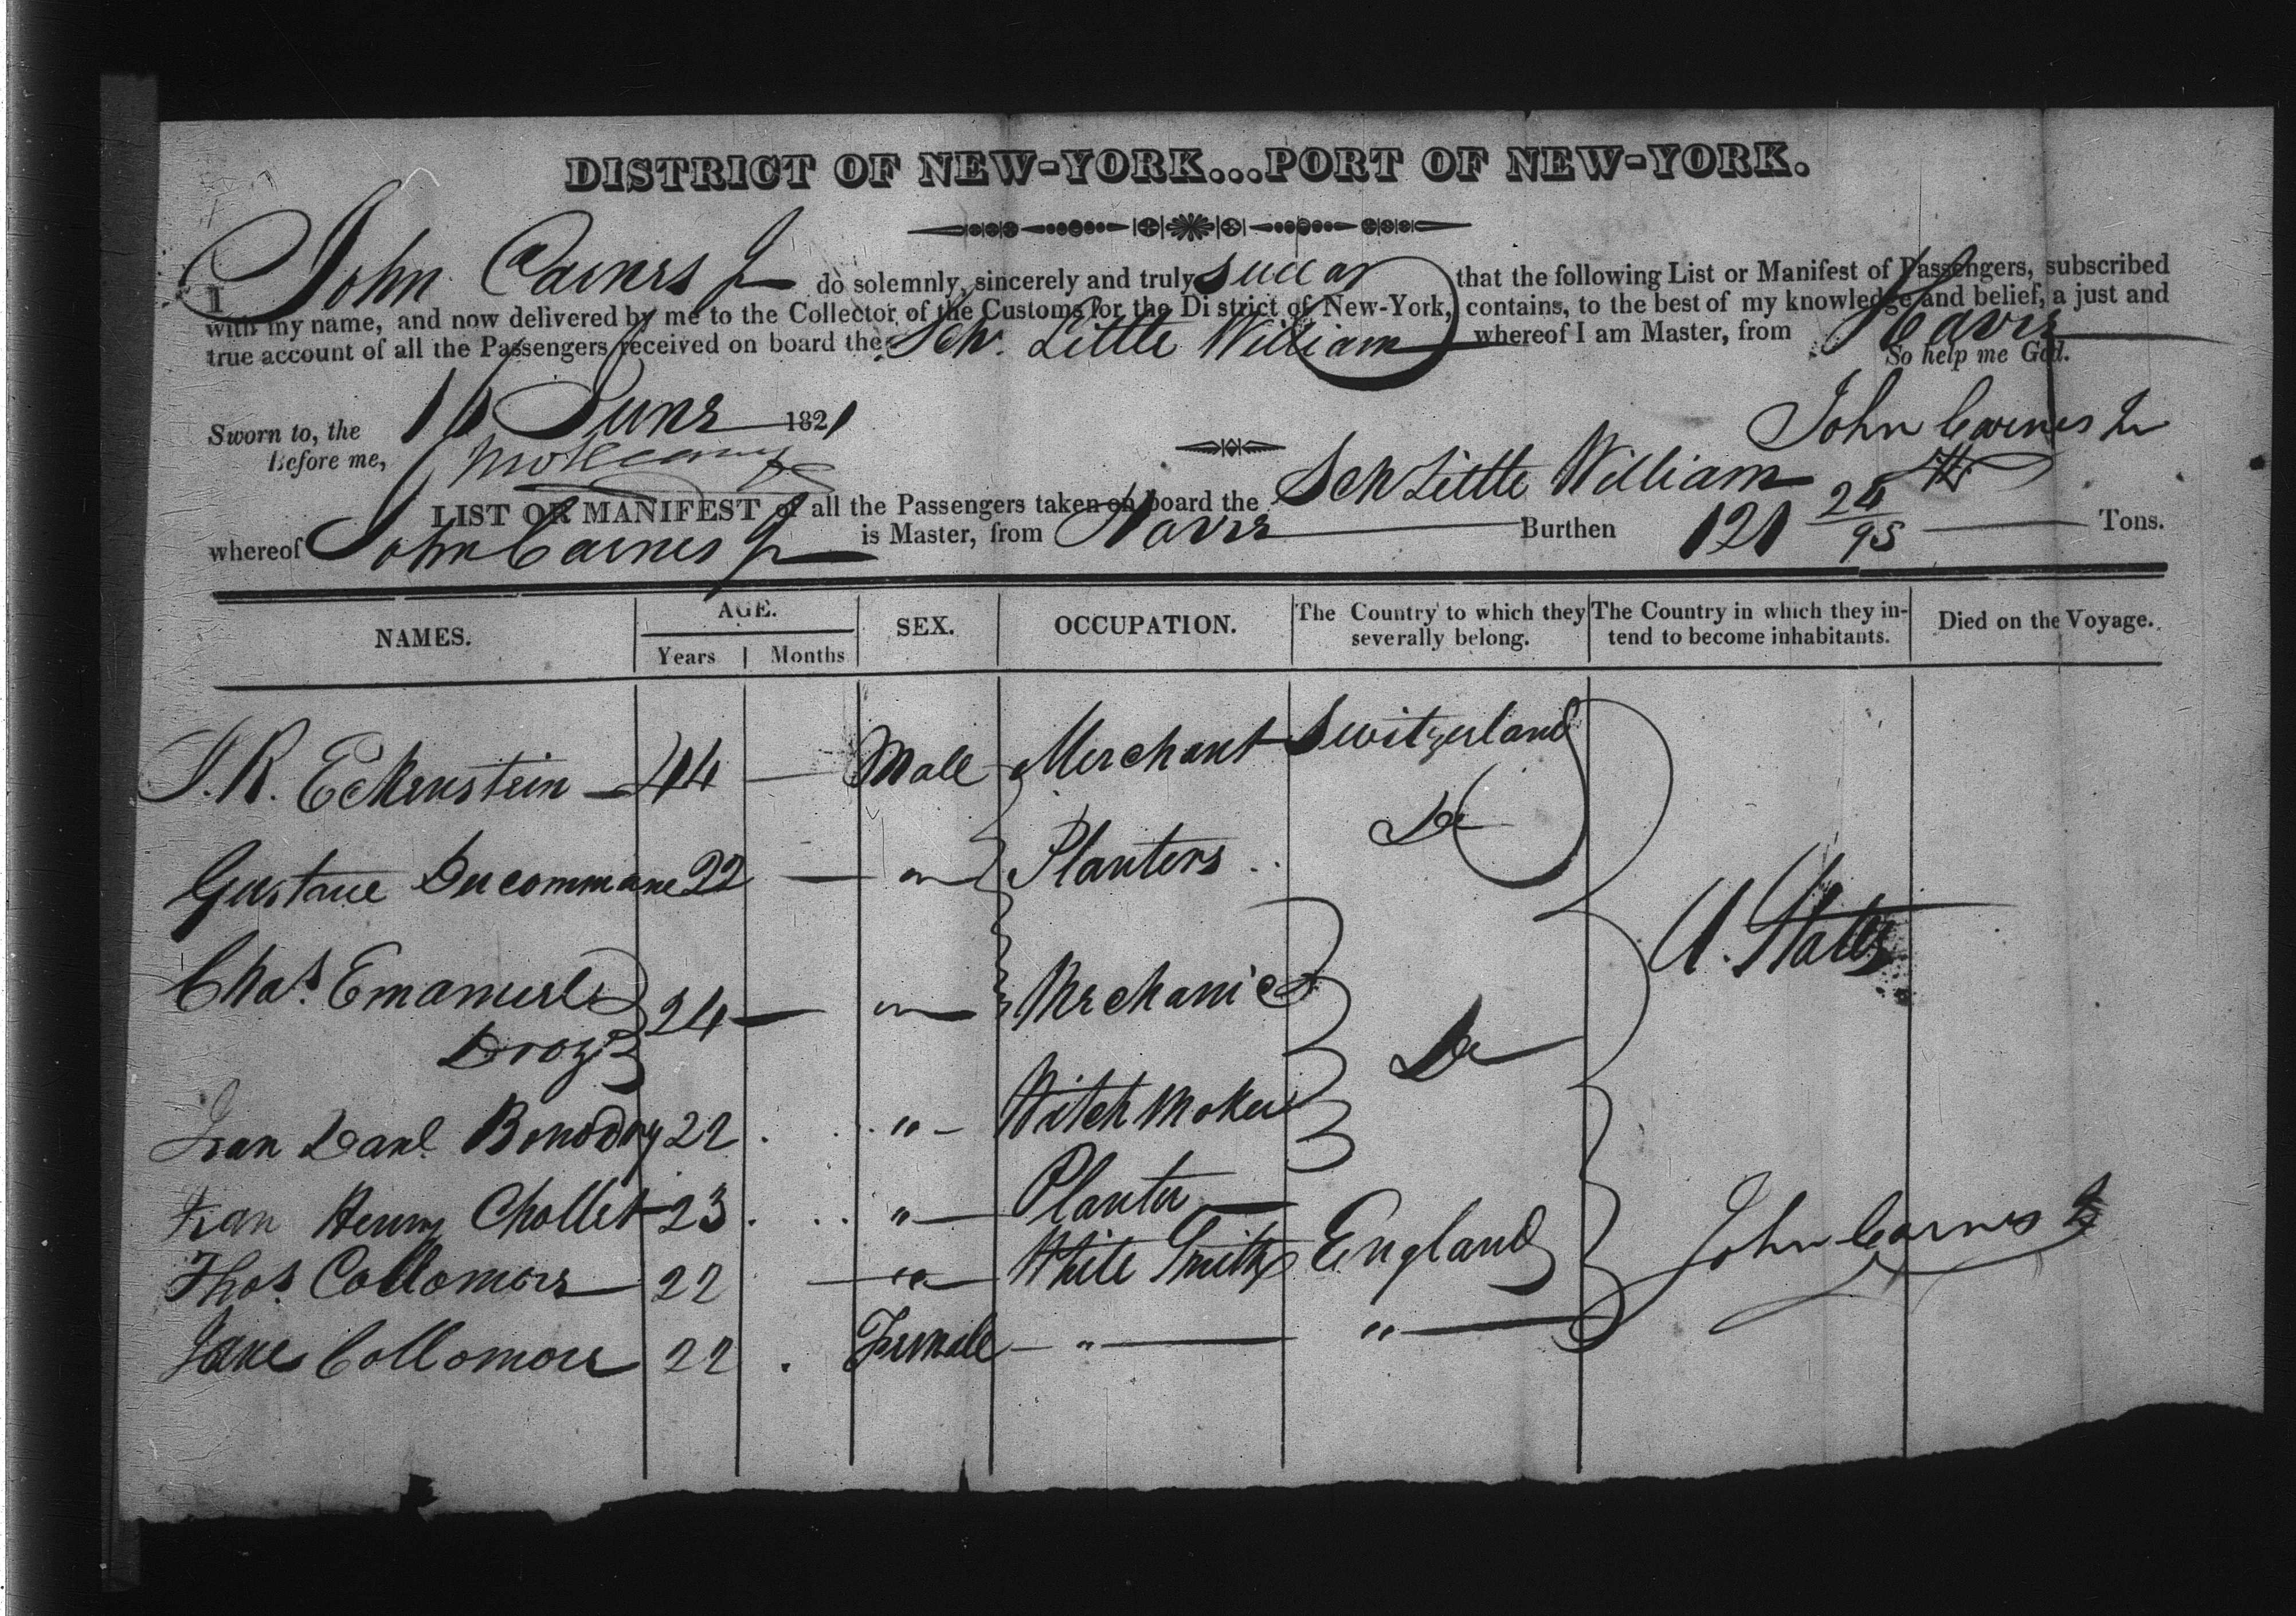 DISTRICT OF NEW-YORK...PORT OF NEW-YORK.
I John Carnes Jr do solemnly, sincerely and truly swear that the following List or Manifest of Passengers, subscribed
with my name, and now delivered by me to the Collector of the Customs for the District of New-York, contains, to the best of my knowledge and belief, a just and
true account of all the Passengers received on board the Sch. Little William whereof I am Master, from Havre
So help me God.
Sworn to, the 16 June 1821
John Carnes Jr
Before me,
LIST OR MANIFEST of all the Passengers taken on board the Sch Little William
whereof John Carnes Jr is Master, from Havre Burthen 121 24/95 Tons.
NAMES. AGE. SEX. OCCUPATION. The Country to which they severally belong. The Country in which they intend to become inhabitants. Died on the Voyage.
Years Months
J. R. Eckenstein 44 — Male Merchant Switzerland
Gustave Ducommune 22 — " Planters Do
U. States
Chas. Emanuel 24 — " Mechanic Do
Droz
Jean Danl. 22 " Witch Maker
Jean Henry Chollet 23 " Planter
Thos. Collomore 22 — " White Smith England
John Carnes Jr
Jane Collomore 22 Female " "